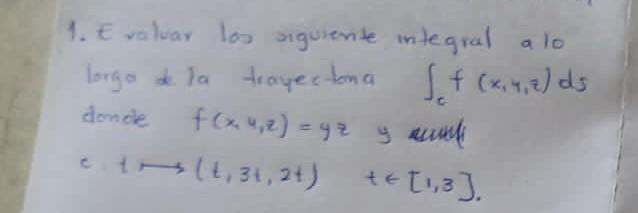 1. Evaluar los siguiente integral a lo
largo de la trayectoria ∫_c f (x, y, z) ds
donde f(x, y, z) = yz y
c t ⟼ (t, 3t, 2t) t ∈ [1,3].